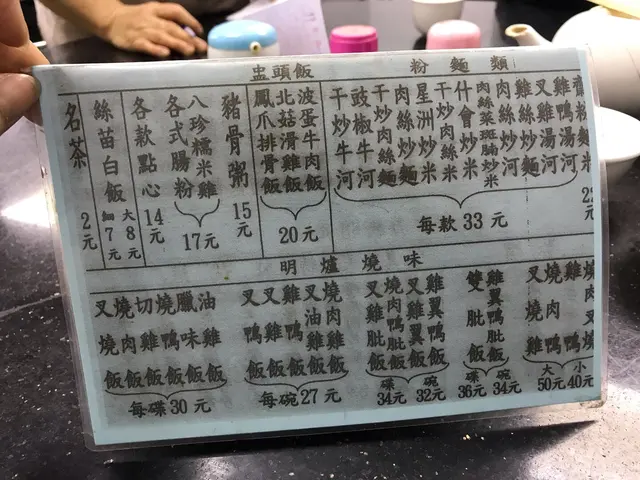 盅頭飯
粉麵類
名茶
2元
絲苗白飯
細7元
大8元
各款點心
14元
各式腸粉
八珍糯米雞
17元
豬骨粥
15元
鳳爪排骨飯
北菇滑雞飯
波蛋牛肉飯
20元
干炒牛河
豉椒牛河
干炒肉絲麵
肉絲炒麵
星洲炒米
干炒肉絲米
什會炒米
肉絲菜斑腩炒米
肉絲炒河
雞絲炒麵
叉鴨湯河
雞鴨湯河
每款33元
22元
明爐燒味
叉燒飯
燒肉飯
切雞飯
燒鴨飯
臘味飯
油雞飯
每碟30元
叉鴨飯
叉雞飯
雞鴨飯
叉油雞飯
燒肉雞飯
每碗27元
叉雞肶飯
燒肉鴨肶飯
叉雞翼飯
雞翼鴨飯
碟34元
碗32元
雙肶飯
雞翼鴨肶飯
碟36元
碗34元
叉燒雞
燒肉鴨
雞鴨
燒肉叉燒
大50元
小40元